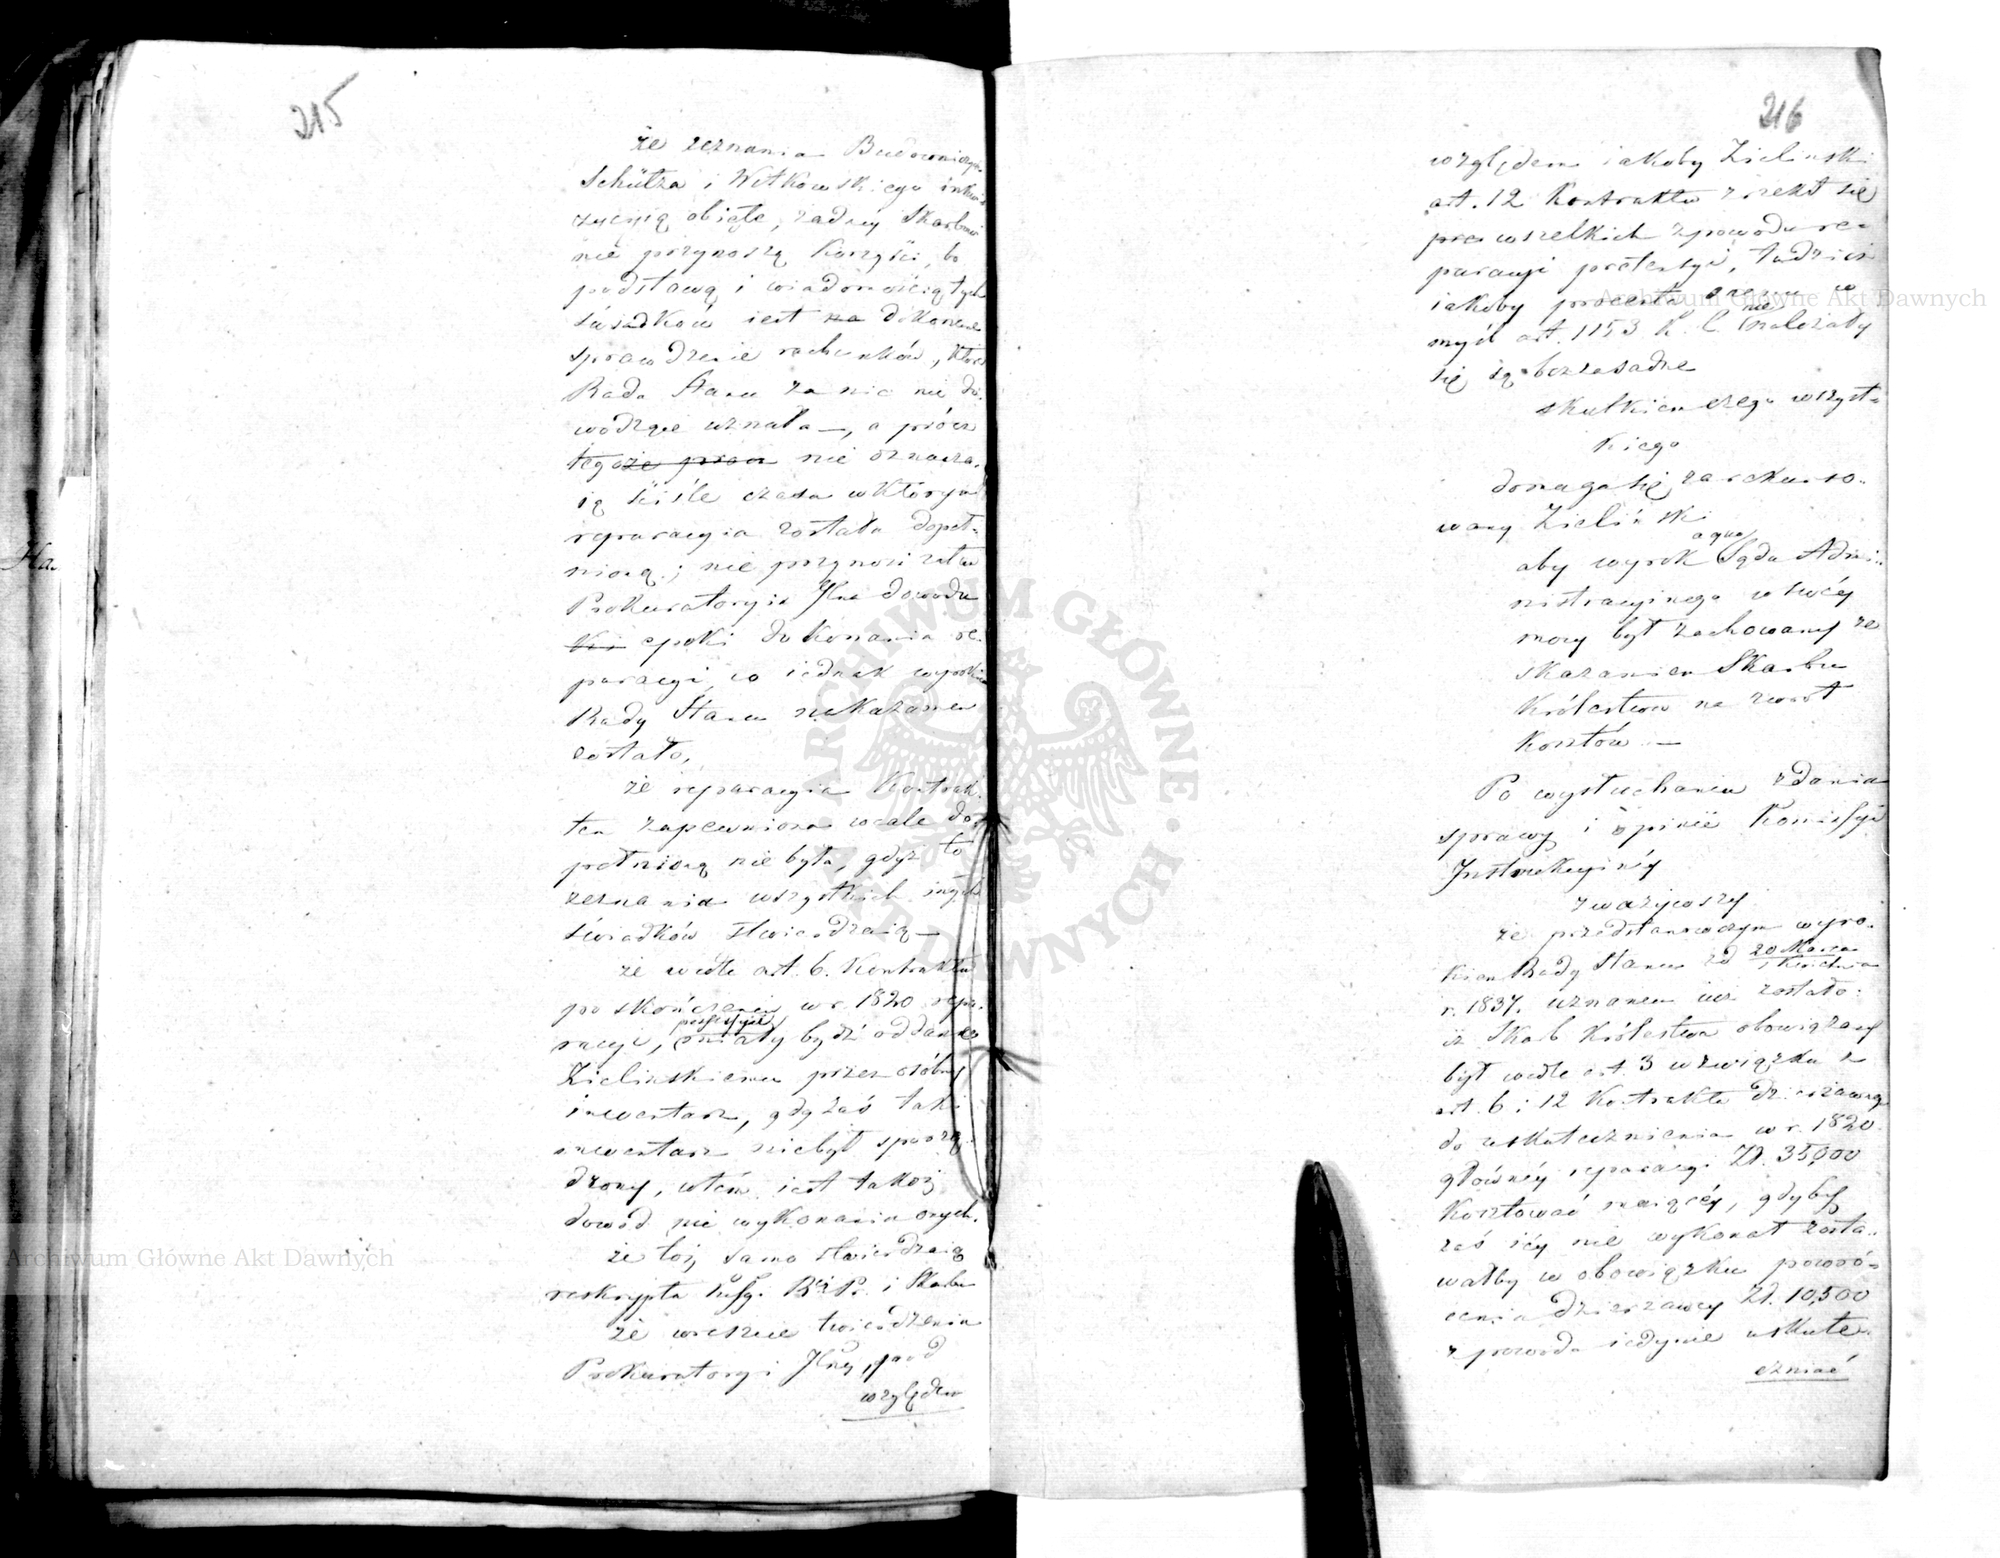 215
że zeznania Budowniczych
Schütza i Witkowskiego inkwi
zycyją objęte, żadney Skarbowi
nie przynoszą Korzyści, bo
podstawą i wiadomością tych
świadków iest na dokonane
sprawdzenie rachunków, które
Rada Stanu za nic nie do„
wodzące uznała —, a prócz
tego że prócz nie oznacza„
ią ściśle czasu w którym
reparacyia została dopeł„
nioną; nie przynosi zatem
Prokuratoryia Jlna dowodu
epoki dokonania re„
paracyi, co iednak wyrokiem
Rady Stanu nakazanem
zostało,
że reparacyia Kontrak„
tem zapewniona wcale do„
pełnioną nie była, gdyż to
zeznania wszystkich innych
świadków stwierdzaią —
że wedle art. 6. Kontraktu
po skończeniu w r. 1820 repa„
racyi, miały bydź oddane
possessyie
Zielinskiemu przez osóbny
inwentarz, gdy zaś taki
inwentarz niebył sporzą„
dzony, w tém iest takoż
dowód nie wykonania onych.
że toż samo stwierdzaią
reskrypta Kssyi. R. P. i Skarbu
że wreszcie twierdzenia
Prokuratoryi Jlney, pod
względem
216
względem iakoby Zielinski
art. 12 Kontraktu zrzekł się
praw wszelkich z powodu re„
paracyi pretensyi, tudzież
iakoby procenta zresztą w
myśl art. 1153 K. C. nie należały
się są bezzasadne
skutkiem czego wszyst„
kiego
domaga się zarekurso„
wany Zieliński
aby wyrok Sądu a quo Admi„
nistracyinego w swéy
mocy był zachowany ze
skazaniem Skarbu
Królestwa na zwrot
Kosztów. —
Po wysłuchaniu zdania
sprawy i opinii Komissyi
Instrukcyinéy
zważywszy
że przedstanowczym wyro„
kiem Rady Stanu z d. 20 Marca
1 Kwietnia
r. 1837. uznanem iuż zostało:
iż Skarb Królestwa obowiązany
był wedle art. 3 w związku z
art. 6 i 12 Kontraktu dzierżawnego
do uskutecznienia w r. 1820.
głównéy reparacyi Zł. 35,000
Kosztować maiącéy, gdyby
zaś iéy nie wykonał zosta„
wałby w obowiązku powró„
cenia dzierżawcy Zł. 10,500
z powodu iedynie uskute„
czniać
Archiwum Główne Akt Dawnych
Archiwum Główne Akt Dawnych
ARCHIWUM GŁÓWNE AKT DAWNYCH